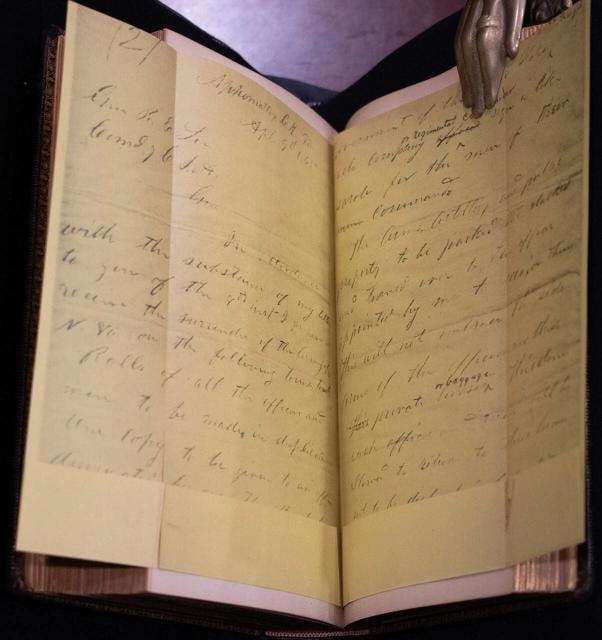 (2)
Appomattox C. H. Va.
Apl. 9th 1865
Gen. R. E. Lee
Comdg C. S. A.
Gen.
In
with the substance of my
to you of the 8th inst. I
receive the surrender of the Army of
N. Va. on the following terms
Rolls of all the officers and
men to be made in duplicate
One copy to be given to an
of the
or regimental commander
each company officer sign a like
parole for the men of their
Commands
The Arms, Artillery and public
property to be parked and stacked
and turned over to the officer
appointed by me to receive them
This will not embrace the side
arms of the officers
or baggage
private horses
each officer and man will be
allowed to return to their homes
not to be disturbed